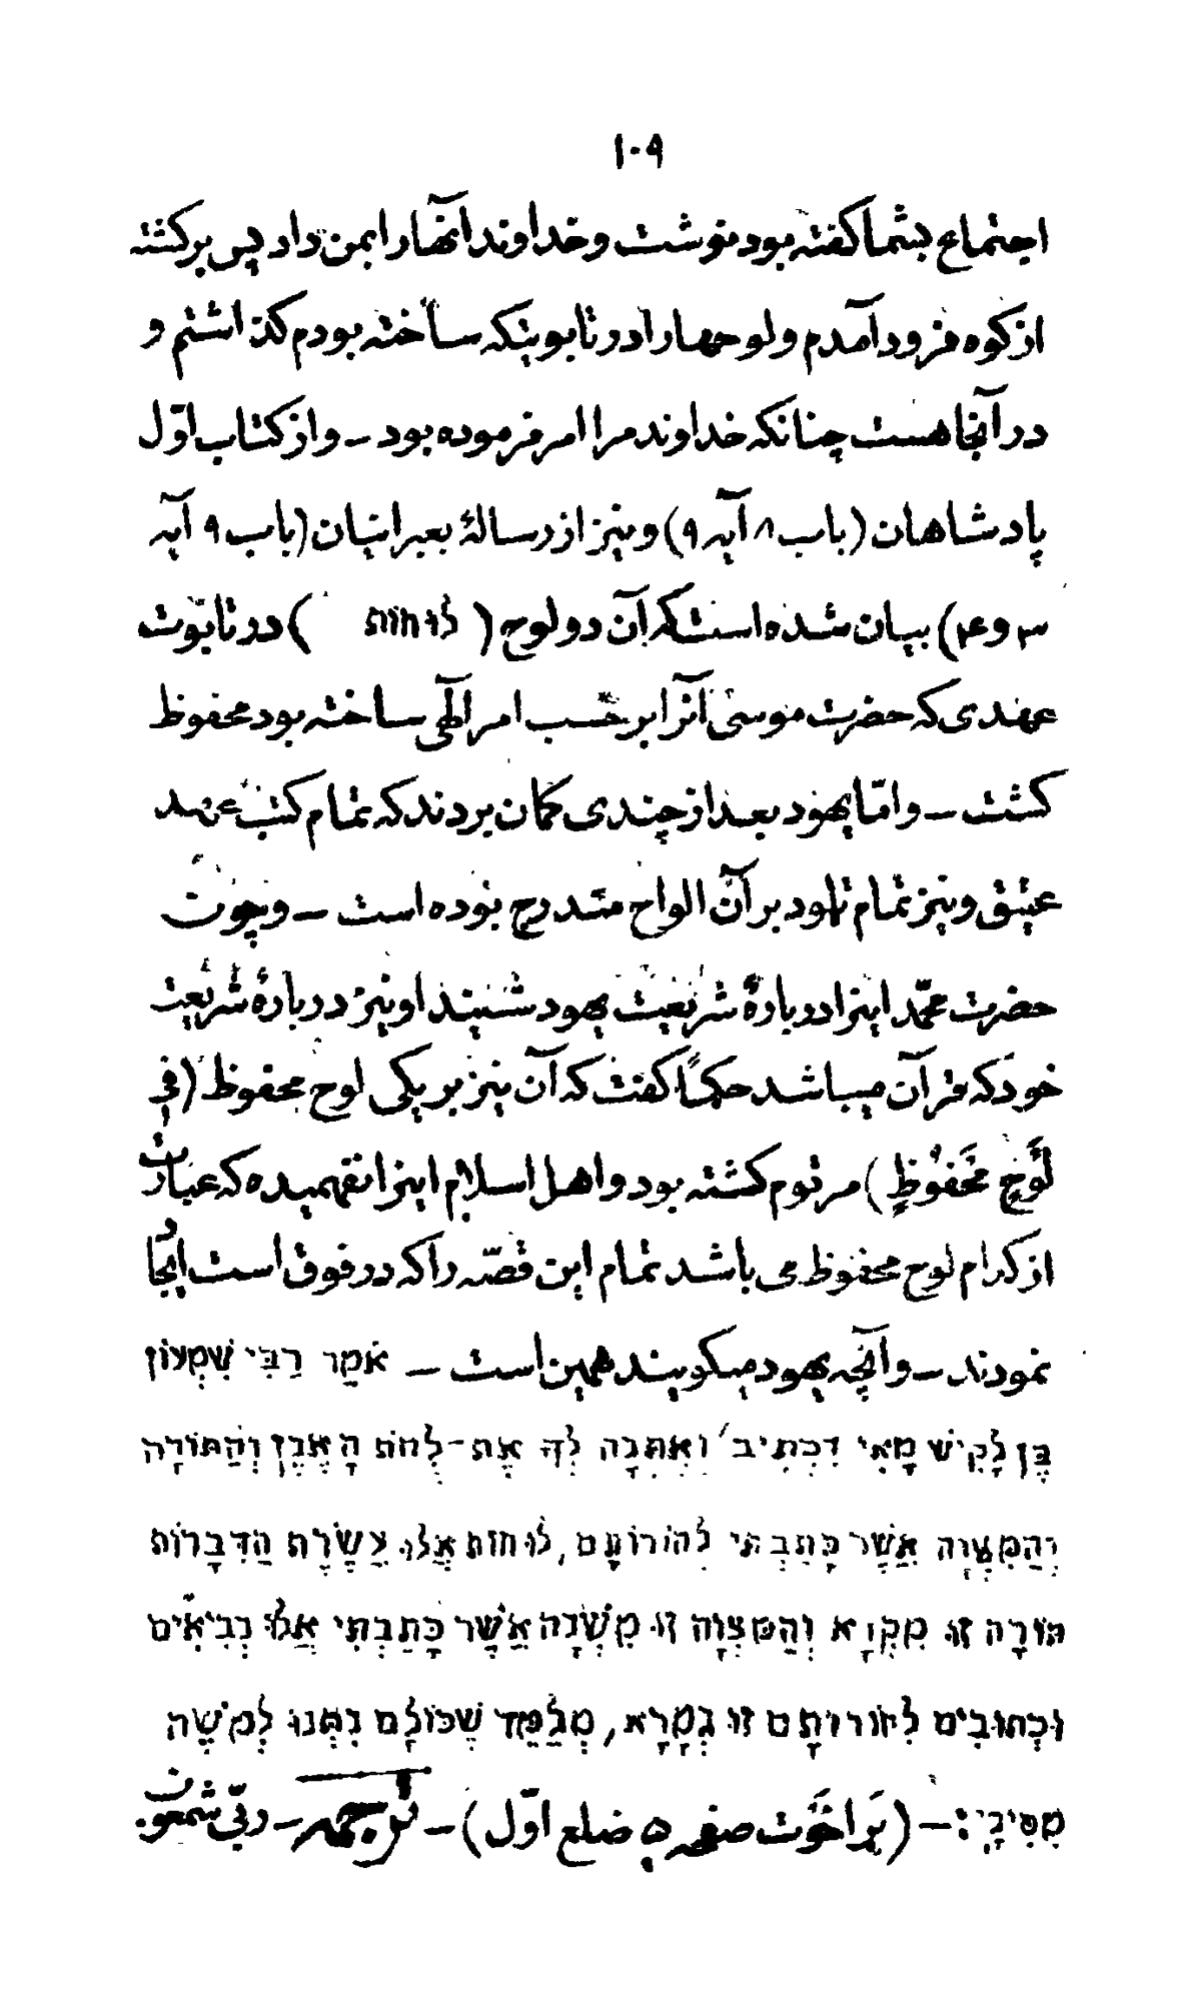 ۱۰۹
اجتماع بشما کفته بود نوشت و خداوند آنها را بمن داد پس برکشته
از کوه فرود آمدم و لوحها را در تابوتیکه ساخته بودم کذاشتم و
در آنجا هست چنانکه خداوند مرا امر فرموده بود – و از کتاب اوّل
پادشاهان (باب ۸ آیه ۹) و نیز از رسالهٔ بعبرانیان (باب ۹ آیه
۳ و ۴) بیان شده است که آن دو لوح ( לוּחוֹת ) در تابوت
عهدی که حضرت موسی آنرا بر حسب امر الٓهی ساخته بود محفوظ
کشت – و امّا یهود بعد از چندی کمان بردند که تمام کتب عهد
عتیق و نیز تمام تلمود بر آن الواح مندرج بوده است – و چون
حضرت محمّد اینرا دربارهٔ شریعت یهود شنیند او نیز دربارهٔ شریعت
خود که قرآن میباشد حکماً کفت که آن نیز بر یکی لوح محفوظ (فِی
لَوْحٍ مَّحْفُوظٍ) مرقوم کشته بود و اهل اسلام اینرا نفهمیده که عبارت
از کدام لوح محفوظ می باشد تمام این قصّه را که در فوق است ایجاد
نمودند – و آنچه یهود میکویند همین است – אׇמַר רַבִּי שִׁמְעוֹן
בֶּן לָקִישׁ מָאִי דִכְתִיב ׳ וְאֶתְּנָה לְךָ אֶת-לֻחֹת הָאֶבֶן וְהַתּוֹרָה
וְהַמִּצְוָה אֲשֶׁר כָּתַבְתִּי לְהוֹרוֹתָם, לוּחוֹת אֵלּוּ עֲשֶׂרֶת הַדִּבְרוֹת
תּוֹרָה זוּ מִקְרָא וְהַמִּצְוָה זוּ מִשְׁנָה אֲשֶׁר כָּתַבְתִּי אֵלּוּ נְבִיאִים
וּכְתוּבִים לְהוֹרוֹתָם זוּ גְמָרָא, מְלַמֵּד שֶׁכּוּלָם נִתְּנוּ לְמֹשֶׁה
מִסִּינָי :– (بَراخوت صفحه ۵ ضلع اوّل) – ترجمه – ربّی شمعون